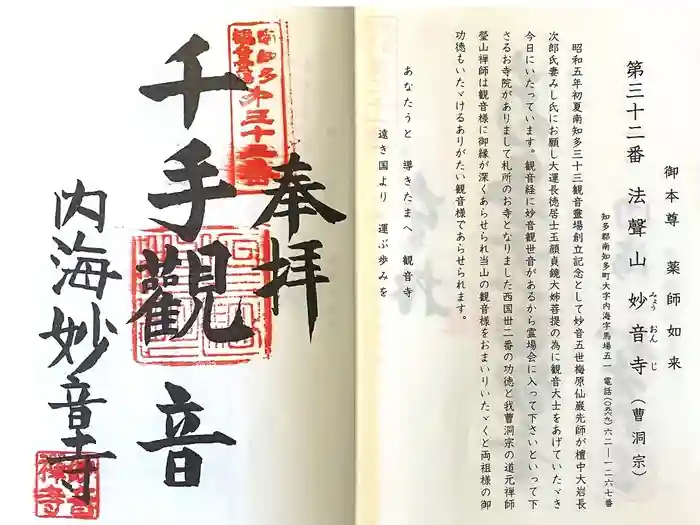 御本尊 薬師如来
第三十二番 法聲山 妙音寺(曹洞宗)
みょう おん じ
知多郡南知多町大字内海字馬場五一 電話(〇五六九)六二―一二六七番
昭和五年初夏南知多三十三観音霊場創立記念として妙音五世梅原仙巌先師が檀中大岩長
次郎氏妻みし氏にお願し大運長徳居士玉顔貞鏡大姉菩提の為に観音大士をあげていたゞき
今日にいたっています。観音経に妙音観世音があるから霊場会に入って下さいといって下
さるお寺院がありまして札所のお寺となりました西国丗二番の功徳と我曹洞宗の道元禅師
瑩山禅師は観音様に御縁が深くあらせられ当山の観音様をおまいりいたゞくと両祖様の御
功徳もいたゞけるありがたい観音様であらせられます。
あなたうと 導きたまへ 観音寺
遠き国より 運ぶ歩みを
奉拝
南知多第三十二番
千手觀音
内海妙音寺